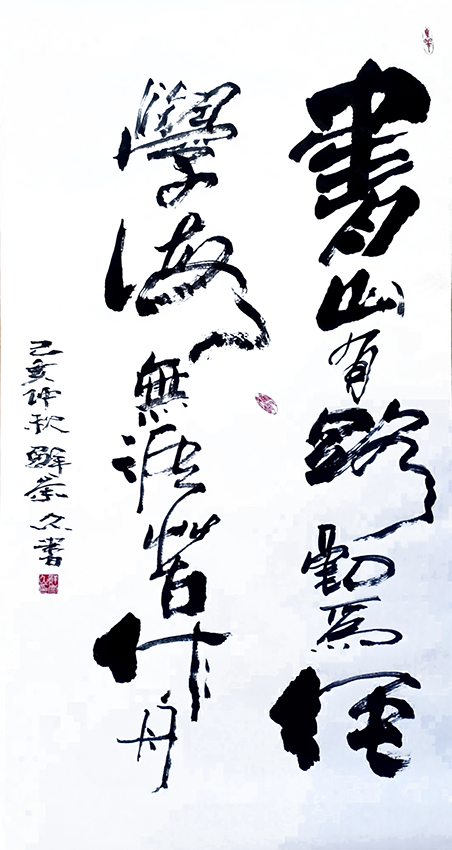 書山有路勤為徑
學海無涯苦作舟
己亥仲秋 書